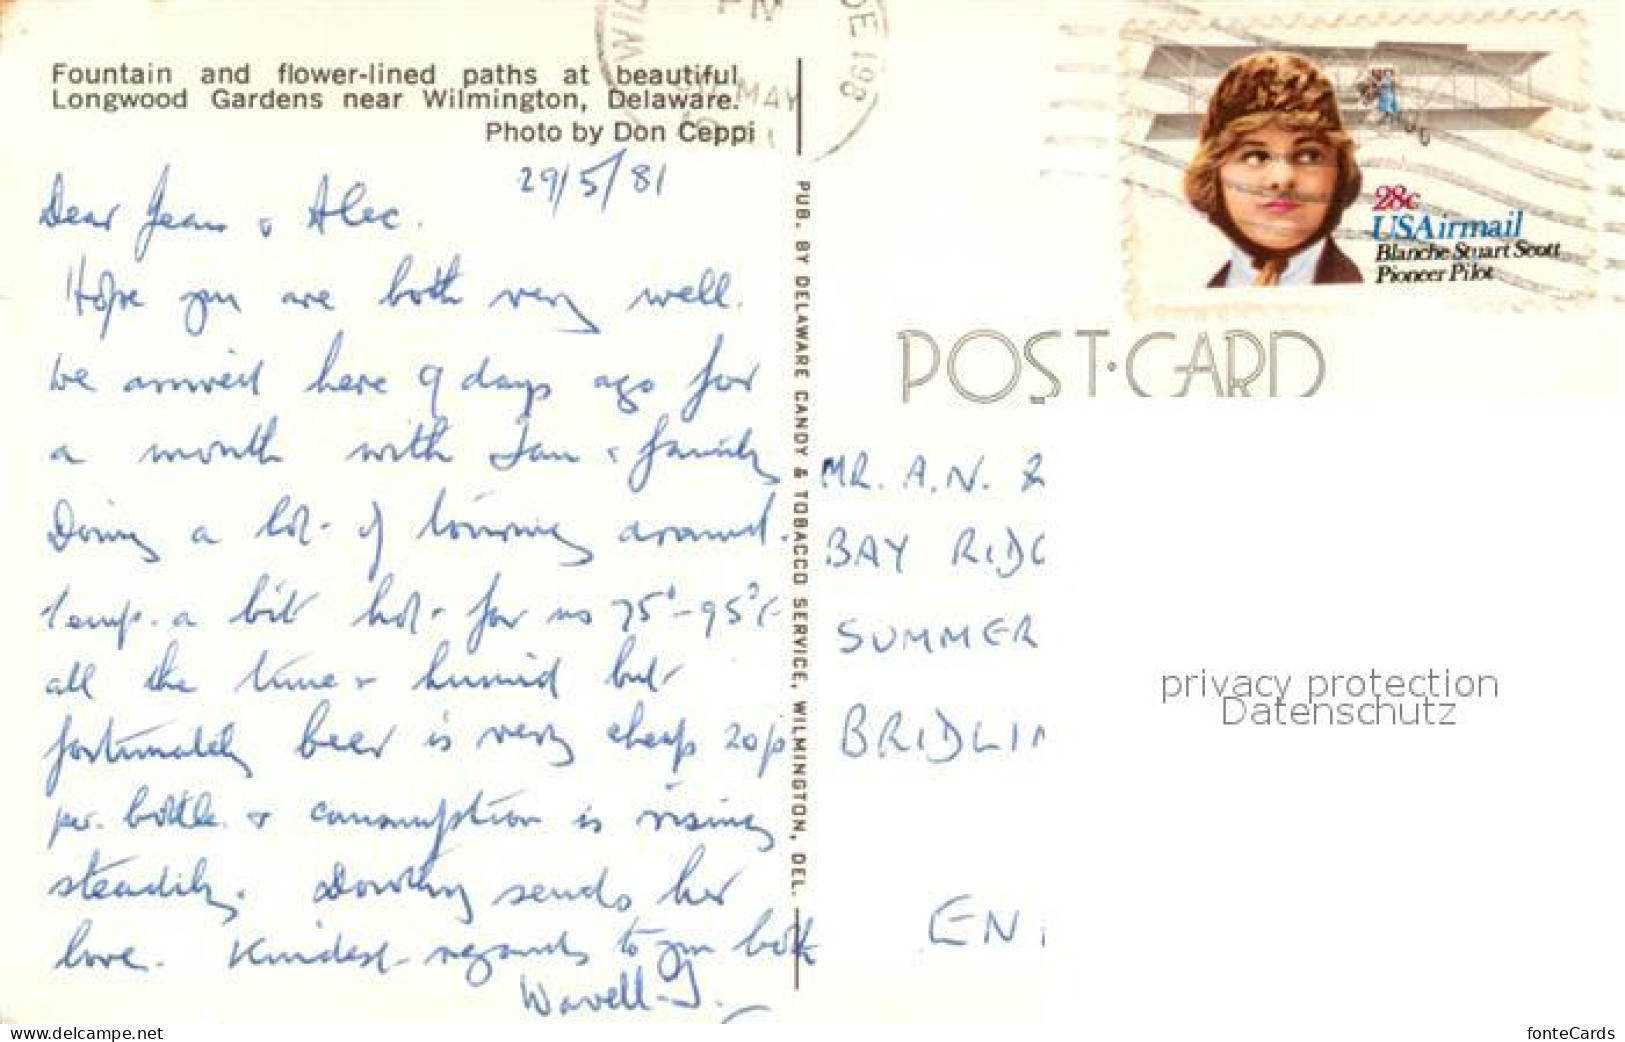 Fountain and flower-lined paths at beautiful
Longwood Gardens near Wilmington, Delaware.
Photo by Don Ceppi
29/5/81
Dear Jean & Alec.
Hope you are both very well.
We arrived here 9 days ago for
a month with Ian & family
Doing a lot of touring around.
Temp. a bit hot for us 75°-95°F
all the time & humid but
fortunately beer is very cheap 20p
per. bottle. & consumption is rising
steadily. Dorothy sends her
love. Kindest regards to you both
Wavell-J.
PUB. BY DELAWARE CANDY & TOBACCO SERVICE, WILMINGTON, DEL.
WIL
PM
MAY
DE 198
28c
USAirmail
Blanche Stuart Scott
Pioneer Pilot
POST·CARD
MR. A.N. &
BAY RIDG
SUMMER
BRIDLIN
EN
privacy protection
Datenschutz
www.delcampe.net
fonteCards